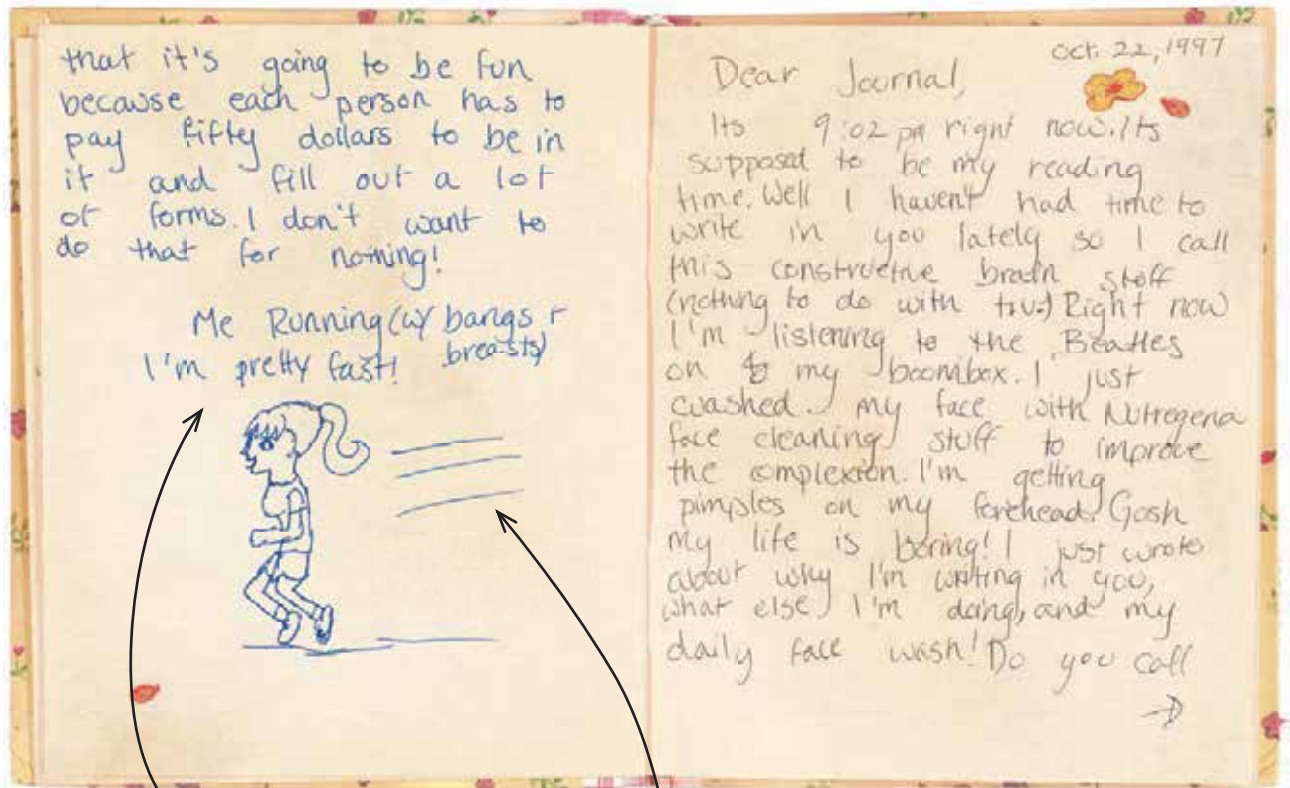 that it's going to be fun
because each person has to
pay fifty dollars to be in
it and fill out a lot
of forms. I don't want to
do that for nothing!
Me Running (w/ bangs +
breasts)
I'm pretty fast!
oct. 22, 1997
Dear Journal,
Its 9:02 pm right now. Its
supposed to be my reading
time. Well I haven't had time to
write in you lately so I call
this constructive brain stuff
(nothing to do with t.v.) Right now
I'm listening to the Beatles
on my boombox. I just
washed my face with Nutregena
face cleaning stuff to improve
the complexion. I'm getting
pimples on my forehead. Gosh
my life is boring! I just wrote
about why I'm writing in you,
what else I'm doing, and my
daily face wash! Do you call